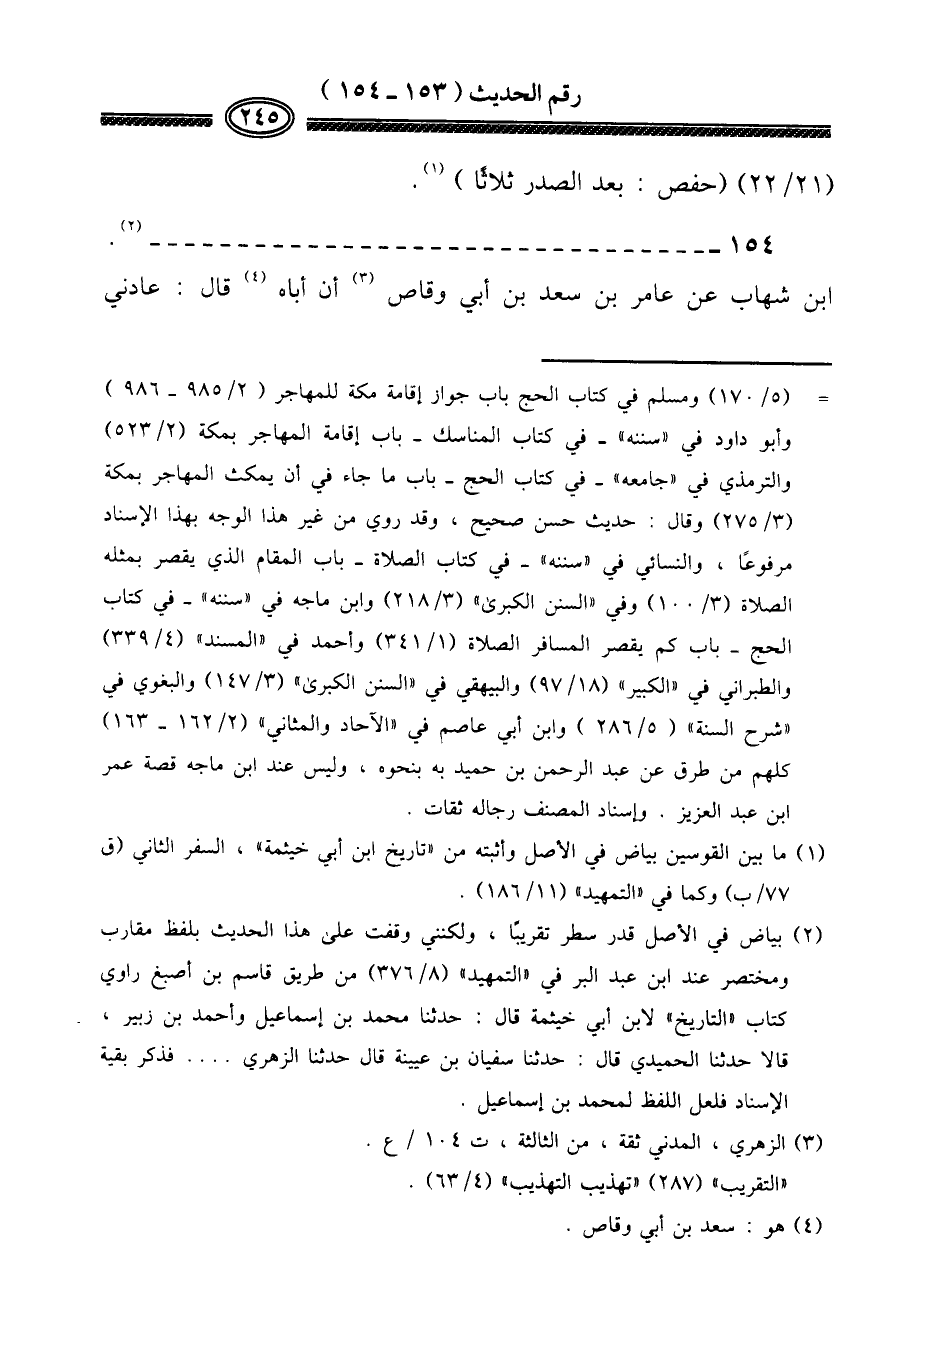 رقم الحديث ( ١٥٣ ـ ١٥٤ )
٢٤٥
(٢٢/٢١) (حفص : بعد الصدر ثلاثًا ) (١) .
١٥٤ ـ ـ ـ ـ ـ ـ ـ ـ ـ ـ ـ ـ ـ ـ ـ ـ ـ ـ ـ ـ ـ ـ ـ ـ ـ ـ ـ ـ ـ ـ ـ ـ (٢) .
ابن شهاب عن عامر بن سعد بن أبي وقاص (٣) أن أباه (٤) قال : عادني
= (١٧٠/٥) ومسلم في كتاب الحج باب جواز إقامة مكة للمهاجر ( ٩٨٥/٢ ـ ٩٨٦ )
وأبو داود في «سننه» ـ في كتاب المناسك ـ باب إقامة المهاجر بمكة (٥٢٣/٢)
والترمذي في «جامعه» ـ في كتاب الحج ـ باب ما جاء في أن يمكث المهاجر بمكة
(٢٧٥/٣) وقال : حديث حسن صحيح ، وقد روي من غير هذا الوجه بهذا الإسناد
مرفوعًا ، والنسائي في «سننه» ـ في كتاب الصلاة ـ باب المقام الذي يقصر بمثله
الصلاة (١٠٠/٣) وفي «السنن الكبرىٰ» (٢١٨/٣) وابن ماجه في «سننه» ـ في كتاب
الحج ـ باب كم يقصر المسافر الصلاة (٣٤١/١) وأحمد في «المسند» (٣٣٩/٤)
والطبراني في «الكبير» (٩٧/١٨) والبيهقي في «السنن الكبرىٰ» (١٤٧/٣) والبغوي في
«شرح السنة» ( ٢٨٦/٥ ) وابن أبي عاصم في «الآحاد والمثاني» (١٦٢/٢ ـ ١٦٣)
كلهم من طرق عن عبد الرحمن بن حميد به بنحوه ، وليس عند ابن ماجه قصة عمر
ابن عبد العزيز . وإسناد المصنف رجاله ثقات .
(١) ما بين القوسين بياض في الأصل وأثبته من «تاريخ ابن أبي خيثمة» ، السفر الثاني (ق
٧٧/ ب) وكما في «التمهيد» (١٨٦/١١) .
(٢) بياض في الأصل قدر سطر تقريبًا ، ولكنني وقفت علىٰ هذا الحديث بلفظ مقارب
ومختصر عند ابن عبد البر في «التمهيد» (٣٧٦/٨) من طريق قاسم بن أصبغ راوي
كتاب «التاريخ» لابن أبي خيثمة قال : حدثنا محمد بن إسماعيل وأحمد بن زبير ،
قالا حدثنا الحميدي قال : حدثنا سفيان بن عيينة قال حدثنا الزهري .... فذكر بقية
الإسناد فلعل اللفظ لمحمد بن إسماعيل .
(٣) الزهري ، المدني ثقة ، من الثالثة ، ت ١٠٤ / ع .
«التقريب» (٢٨٧) «تهذيب التهذيب» (٦٣/٤) .
(٤) هو : سعد بن أبي وقاص .